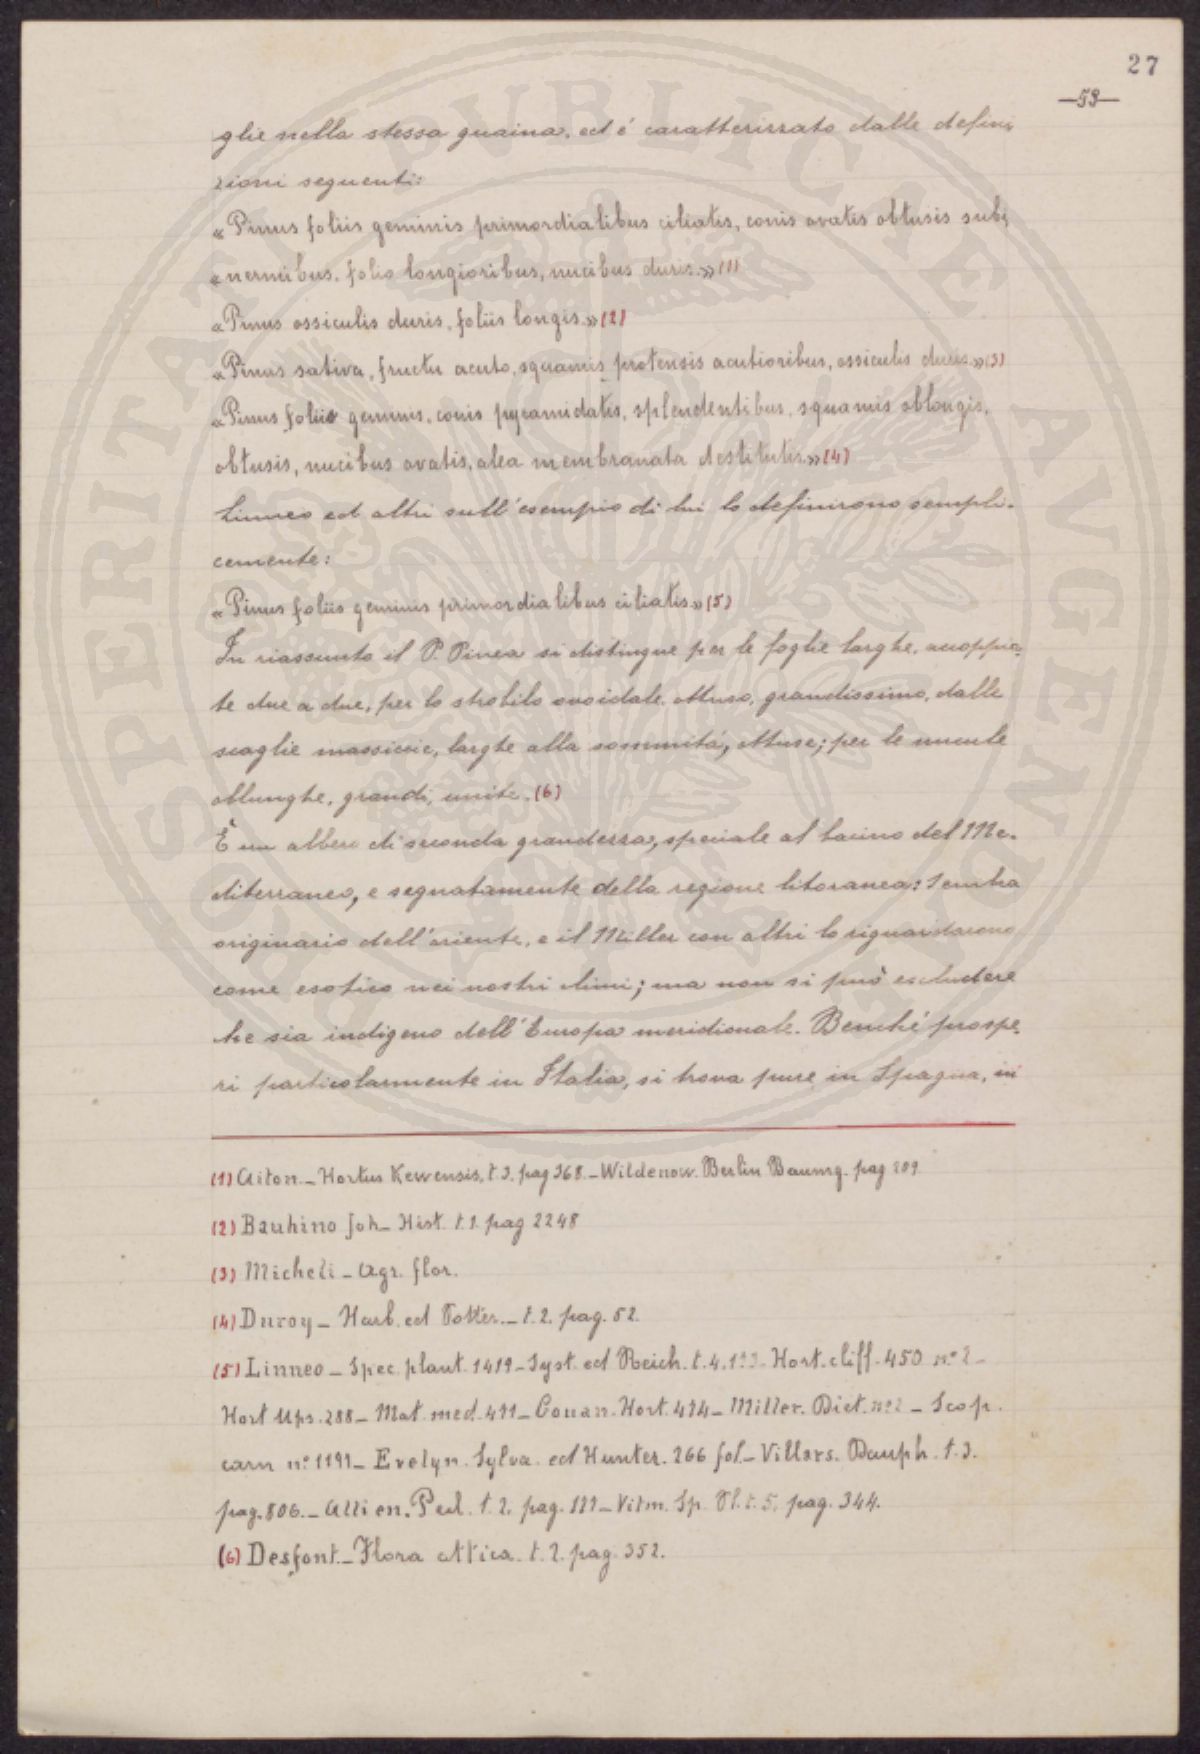 27
—53—
glie nella stessa guaina, ed é caratterizzato dalle defini,
zioni seguenti:
«Pinus foliis geminis primordialibus ciliatis, conis ovatis obtusis subi,
«nermibus, folio longioribus, nucibus duris.» (1)
«Pinus ossiculis duris, foliis longis.» (2)
«Pinus sativa, fructu acuto, squamis protensis acutioribus, ossiculis duris.» (3)
«Pinus foliis geminis, conis pyramidatis, splendentibus, squamis oblongis,
obtusis, nucibus ovatis, alea membranata destitutis.» (4)
Linneo ed altri sull'esempio di lui lo definirono sempli-
cemente:
«Pinus foliis geminis primordialibus ciliatis.» (5)
In riassunto il P. Pinea si distingue per le foglie larghe, accoppia,
te due a due, per lo strobilo ovoidale, ottuso, grandissimo, dalle
scaglie massiccie, larghe alla sommitá, ottuse; per le nucule
oblunghe, grandi, unite. (6)
È un albero di seconda grandezza, speciale al bacino del Me-
diterraneo, e segnatamente della regione litoranea: Sembra
originario dell'oriente, e il Miller con altri lo riguardarono
come esotico nei nostri climi; ma non si può escludere
che sia indigeno dell'Europa meridionale. Benché prospe,
ri particolarmente in Italia, si trova pure in Spagna, in
(1) Aiton._ Hortus Kewensis, t. 3. pag 368._ Wildenow. Berlin Baumg. pag 209.
(2) Bauhino Joh_ Hist. t. 1. pag 2248
(3) Micheli _ Agr. flor.
(4) Duroy _ Harb. ed Potter._ t. 2. pag. 52.
(5) Linneo _ Spec. plant. 1419_ Syst. ed Reich. t. 4. _ Hort. cliff. 450 n.º 2 _
Hort Ups. 288_ Mat. med. 411_ Gouan. Hort. 494_ Miller. Dict. n.º 2 _ Scop.
carn n.º 1191_ Evelyn. Sylva. ed Hunter. 266 fol._ Villars. Dauph. t. 3.
pag. 806._ Allien. Ped. t. 2. pag. 177_ Vitm. Sp. Pl. t. 5. pag. 344.
(6) Desfont._ Flora attica. t. 2. pag. 352.
PROSPERITATI PVBLICAE AVGENDAE